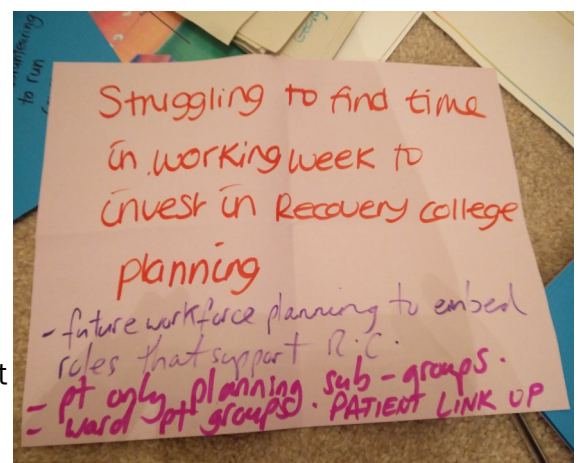 to run
Struggling to find time
in working week to
invest in Recovery college
planning
- future workforce planning to embed
roles that support R.C.
- pt only planning sub-groups.
- ward pt groups. PATIENT LINK UP